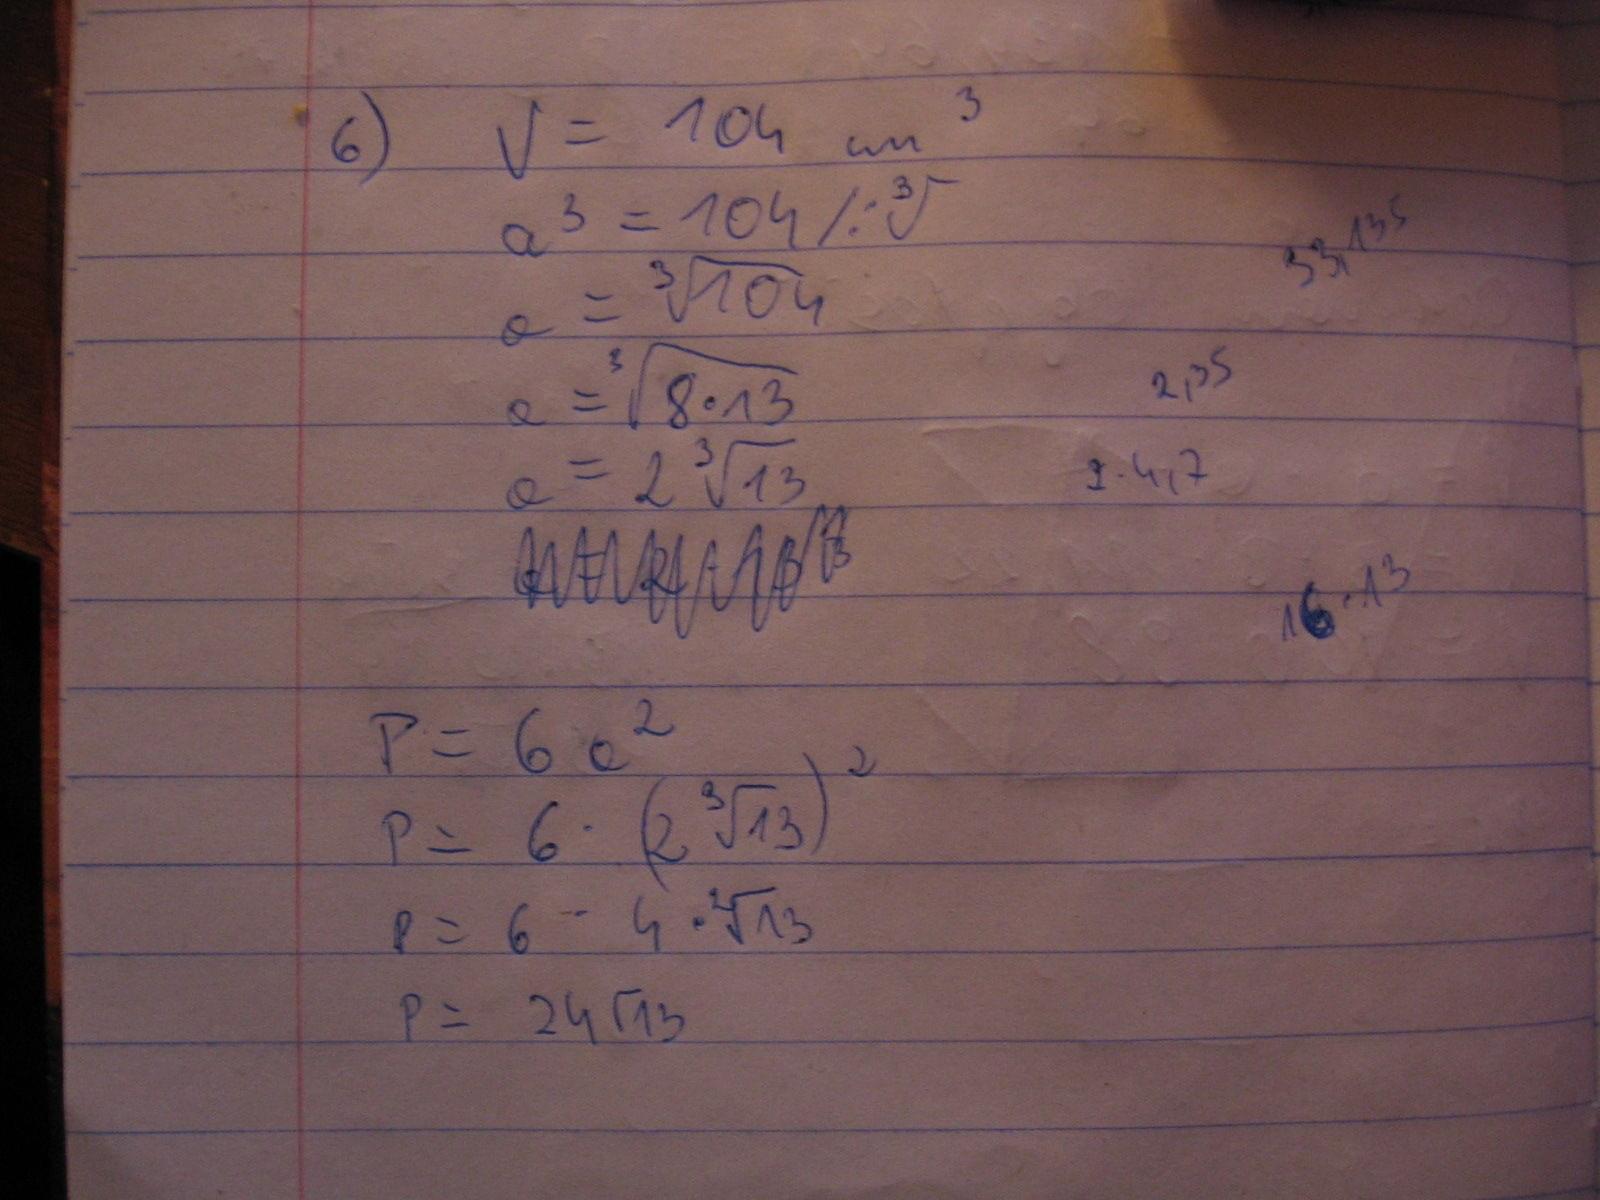 6) V = 104 cm³
a³ = 104 /:∛
a = ∛104
a = ∛8·13
a = 2 ∛13
P = 6 a²
P = 6 · (2 ∛13)²
P = 6 · 4 · ∛13
P = 24 √13
33,135
2,35
2·4,7
16·13